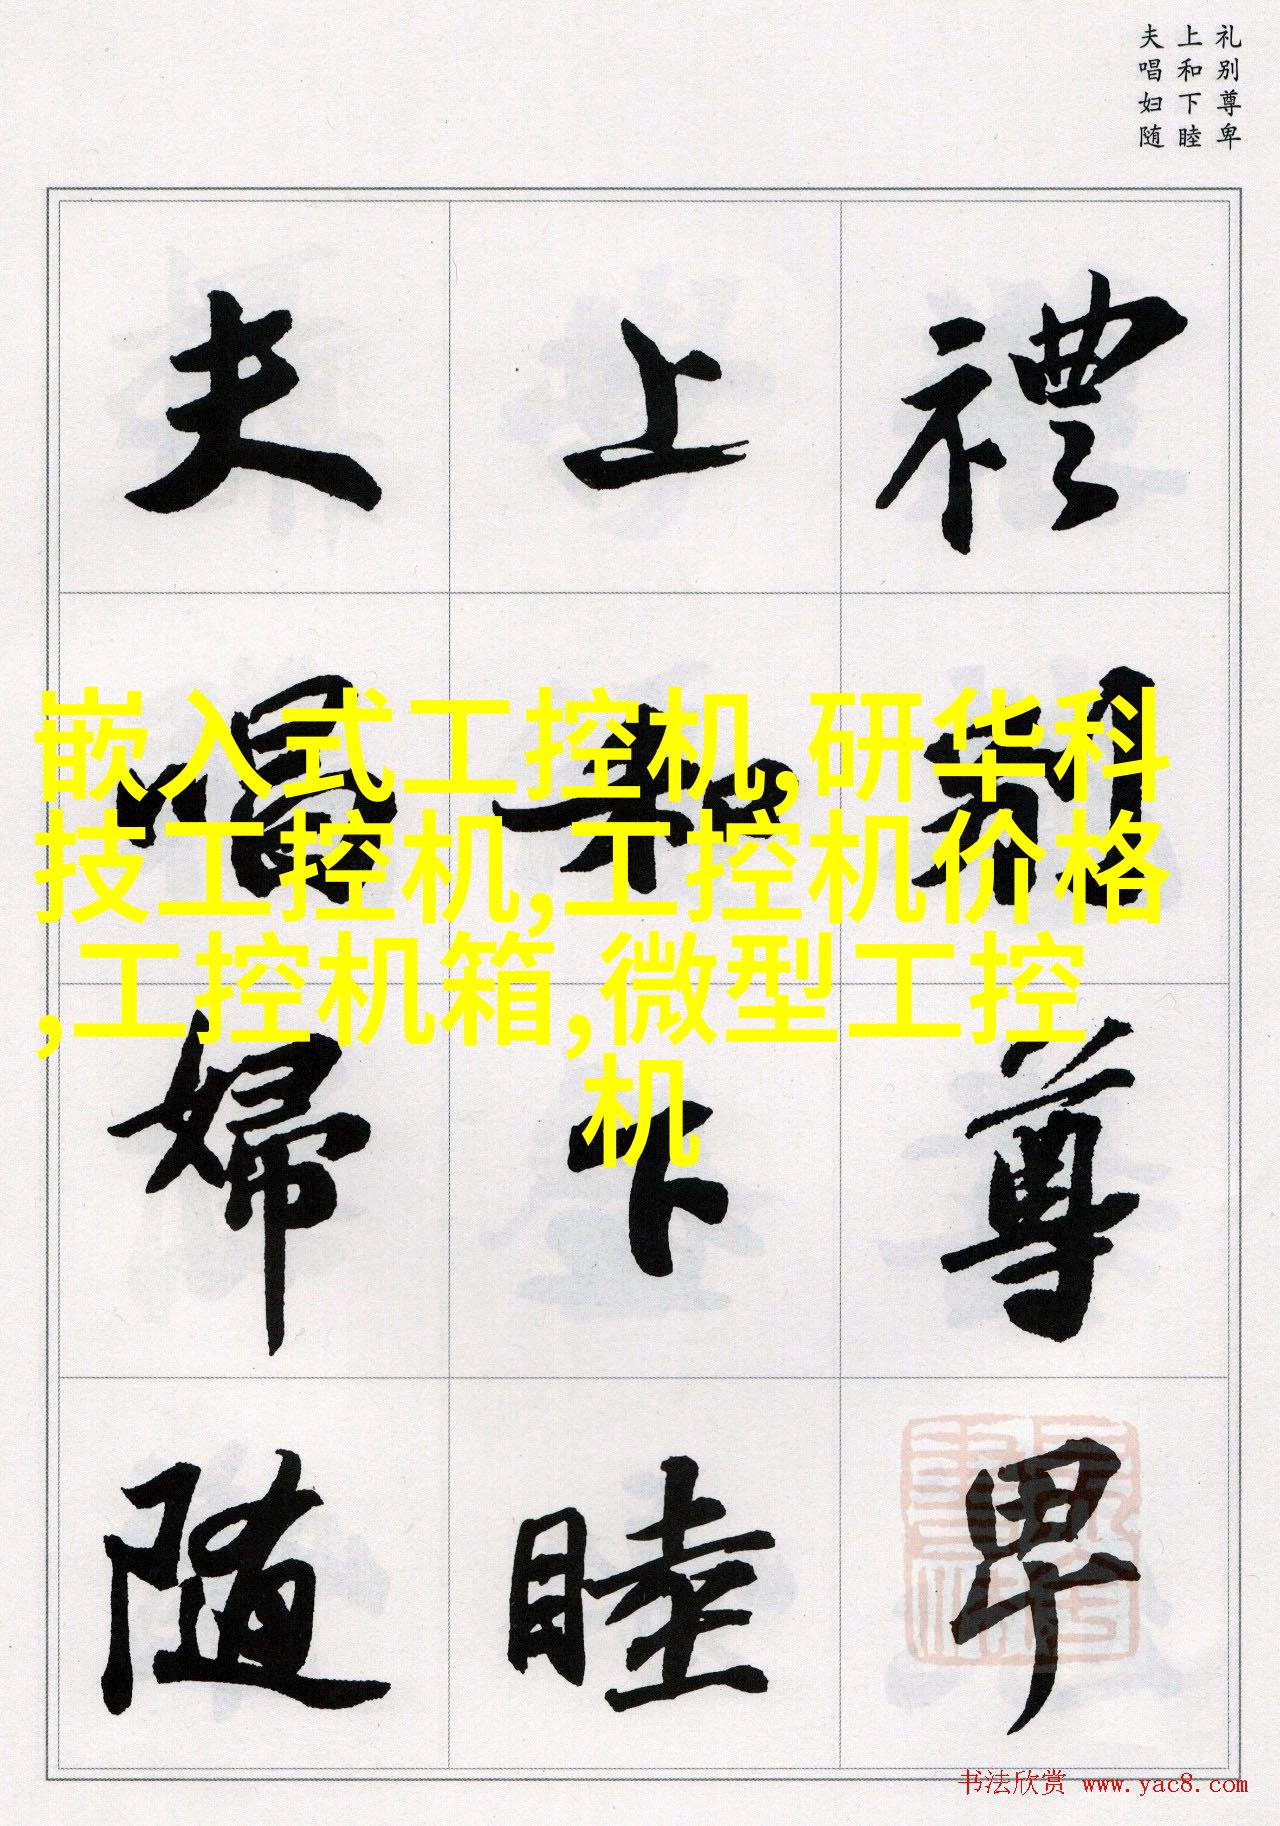 礼别尊卑
上和下睦
夫唱妇随
禮別尊卑
上和下睦
夫唱婦隨
嵌入式工控机,研华科
技工控机,工控机价格
,工控机箱,微型工控
机
书法欣赏 www.yac8.com